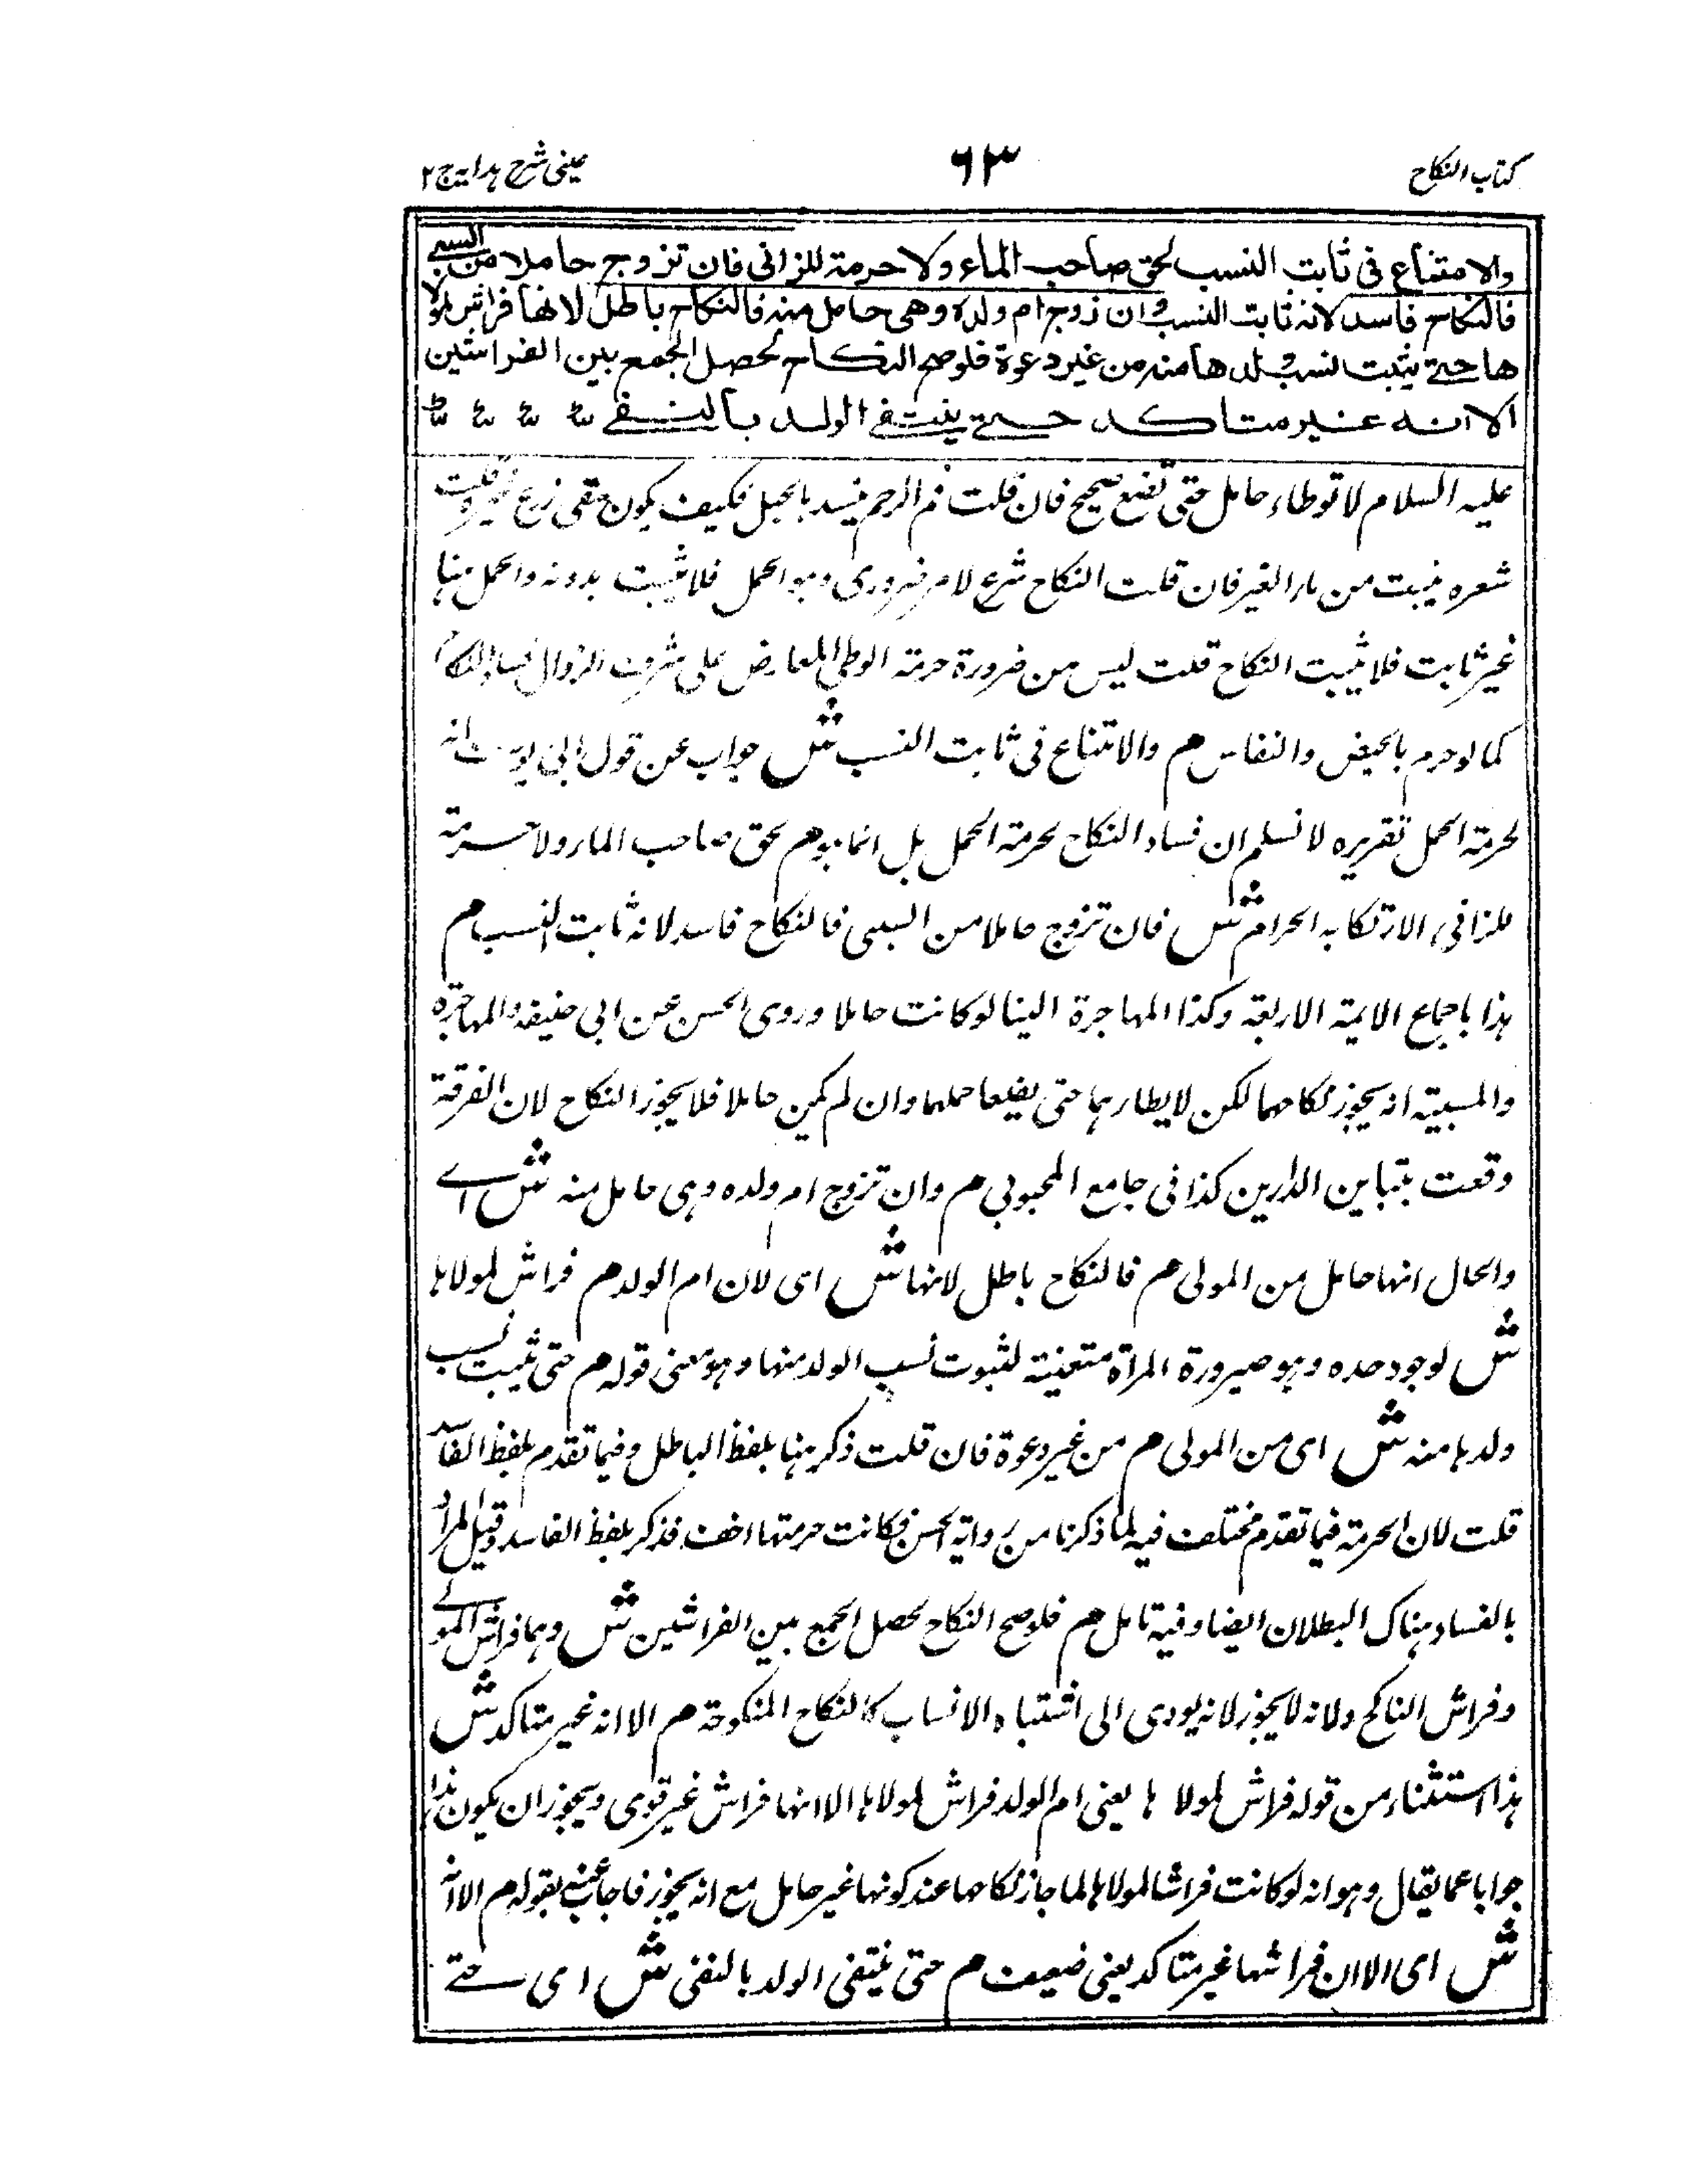 كتاب النكاح
٦٣
عينى شرح هدايه ج ٢
والامتناع فى ثابت النسب لحق صاحب الماء ولا حرمة للزانى فان تزوج حاملا من السبي
فالنكاح فاسد لانه ثابت النسب وان زوج ام ولده وهى حامل منه فالنكاح باطل لانها فراش لمولا
ها حتى يثبت نسب ولدها منه من غير دعوة فلو صح النكاح لحصل الجمع بين الفراشين
الا انه غير متاكد حتى ينتفى الولد بالنفى
عليه السلام لا توطاء حامل حتى تضع صحيح فان قلت فم الرحم ينسد بالحبل فكيف يكون سقى زرع غيره قلت
شعره ينبت من ماء الغير فان قلت النكاح شرع لامر ضرورى وهو الحمل فلا يثبت بدونه والحمل هنا
غير ثابت فلا يثبت النكاح قلت ليس من ضرورة حرمة الوطى لعارض على شرف الزوال فساد النكاح
كما لو حرم بالحيض والنفاس م والامتناع فى ثابت النسب ش جواب عن قول ابى يوسف انه
لحرمة الحمل تقريره لا نسلم ان فساد النكاح لحرمة الحمل بل انما هو م لحق صاحب الماء ولا حرمة
للزانى لارتكابه الحرام ش فان تزوج حاملا من السبى فالنكاح فاسد لانه ثابت النسب م
هذا باجماع الايمة الاربعة وكذا المهاجرة الينا لو كانت حاملا وروى الحسن عن ابى حنيفة والمهاجرة
والمسبية انه يجوز نكاحهما لكن لا يطاء بها حتى يضعا حملهما وان لم يكن حاملا فلا يجوز النكاح لان الفرقة
وقعت بتباين الدارين كذا فى جامع المحبوبى م وان تزوج ام ولده وهى حامل منه ش اے
والحال انها حامل من المولى م فالنكاح باطل لانها ش اى لان ام الولد م فراش لمولاها
ش لوجود حده وهو صيرورة المراة متعينة لثبوت نسب الولد منها وهو معنى قوله م حتى يثبت نسب
ولدها منه ش اى من المولى م من غير دعوة فان قلت ذكر هنا بلفظ الباطل وفيما تقدم بلفظ الفاسد
قلت لان الحرمة فيما تقدم مختلف فيه لما ذكرنا من رواية الحسن فكانت حرمتها اخف فذكر بلفظ الفاسد وقيل المراد
بالفساد هناك البطلان ايضا وفيه تامل م فلو صح النكاح لحصل الجمع بين الفراشين ش وهما فراش المولے
وفراش الناكح ولانه لا يجوز لانه يودى الى اشتباه الانساب كالنكاح المنكوحة م الا انه غير متاكد ش
هذا استثناء من قوله فراش لمولا ها يعنى ام الولد فراش لمولاها الا انها فراش غير قوى ويجوز ان يكون هذا
جوابا عما يقال وهو انه لو كانت فراشا لمولاها لما جاز نكاحها عند كونها غير حامل مع انه يجوز فاجاب عنه بقوله م الا انه
ش اى الا ان فراشها غير متاكد يعنى ضعيف م حتى ينتفى الولد بالنفى ش اى حتے